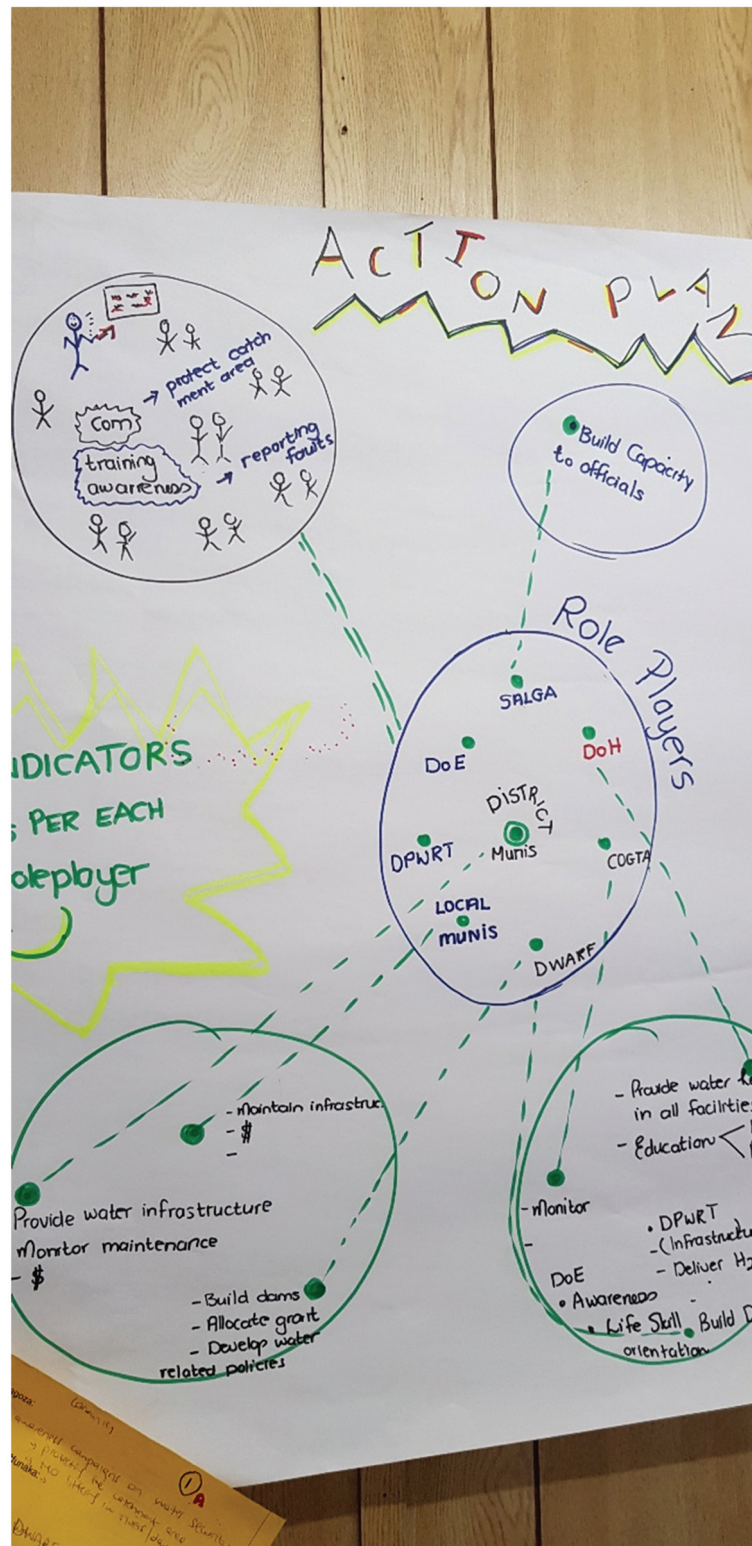 ACTION PLAN
com
→ protect catch
ment area
training
awareness
→ reporting
faults
Build Capacity
to officials
Role Players
SALGA
DoE
DoH
DISTRICT
Munis
DPWRT
COGTA
LOCAL
MUNIS
DWARF
NDICATORS
PER EACH
oleplayer
- Maintain infrastruc.
- $
-
Provide water infrastructure
Monitor maintenance
- $
- Build dams
- Allocate grant
- Develop water
related policies
- Provide water
in all facilitie
- Education <
- Monitor
-
• DPWRT
- (Infrastructu
- Deliver H2
DoE
• Awareness
• Life Skill
orientation
Build D
agoza:
awareness campaigns on water
→ protect the catchment area
1
A